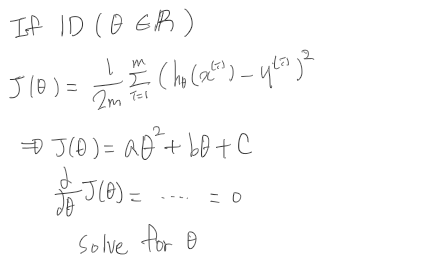 If 1D (θ ∈ ℝ)
J(θ) = 1/2m Σ_{i=1}^{m} (h_θ(x^{(i)}) - y^{(i)})²
⇒ J(θ) = aθ² + bθ + C
d/dθ J(θ) = ..... = 0
Solve for θ